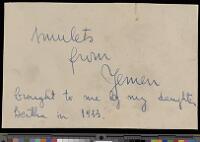 Amulets
from
Yemen
brought to me by my daughter
Bertha in 1933.